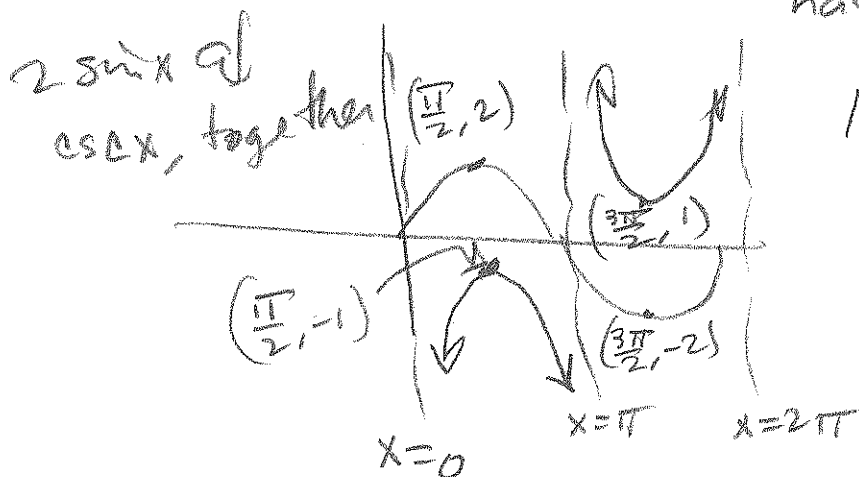 2 sin x &
csc x, together
(π/2, 2)
(3π/2, 1)
(π/2, -1)
(3π/2, -2)
x=0
x=π
x=2π